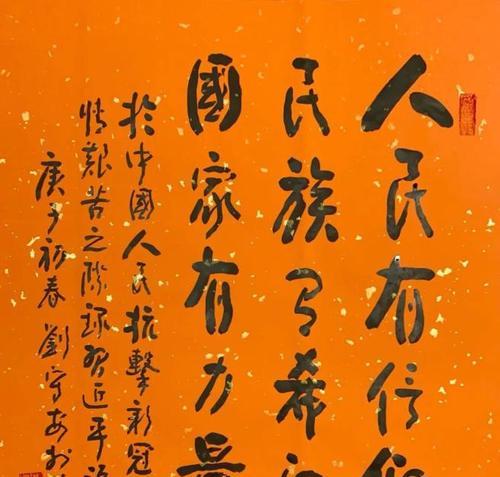 人民有信仰
民族有希望
國家有力量
於中國人民抗擊新冠
情艱苦之際錄習近平
庚子初春劉守安於